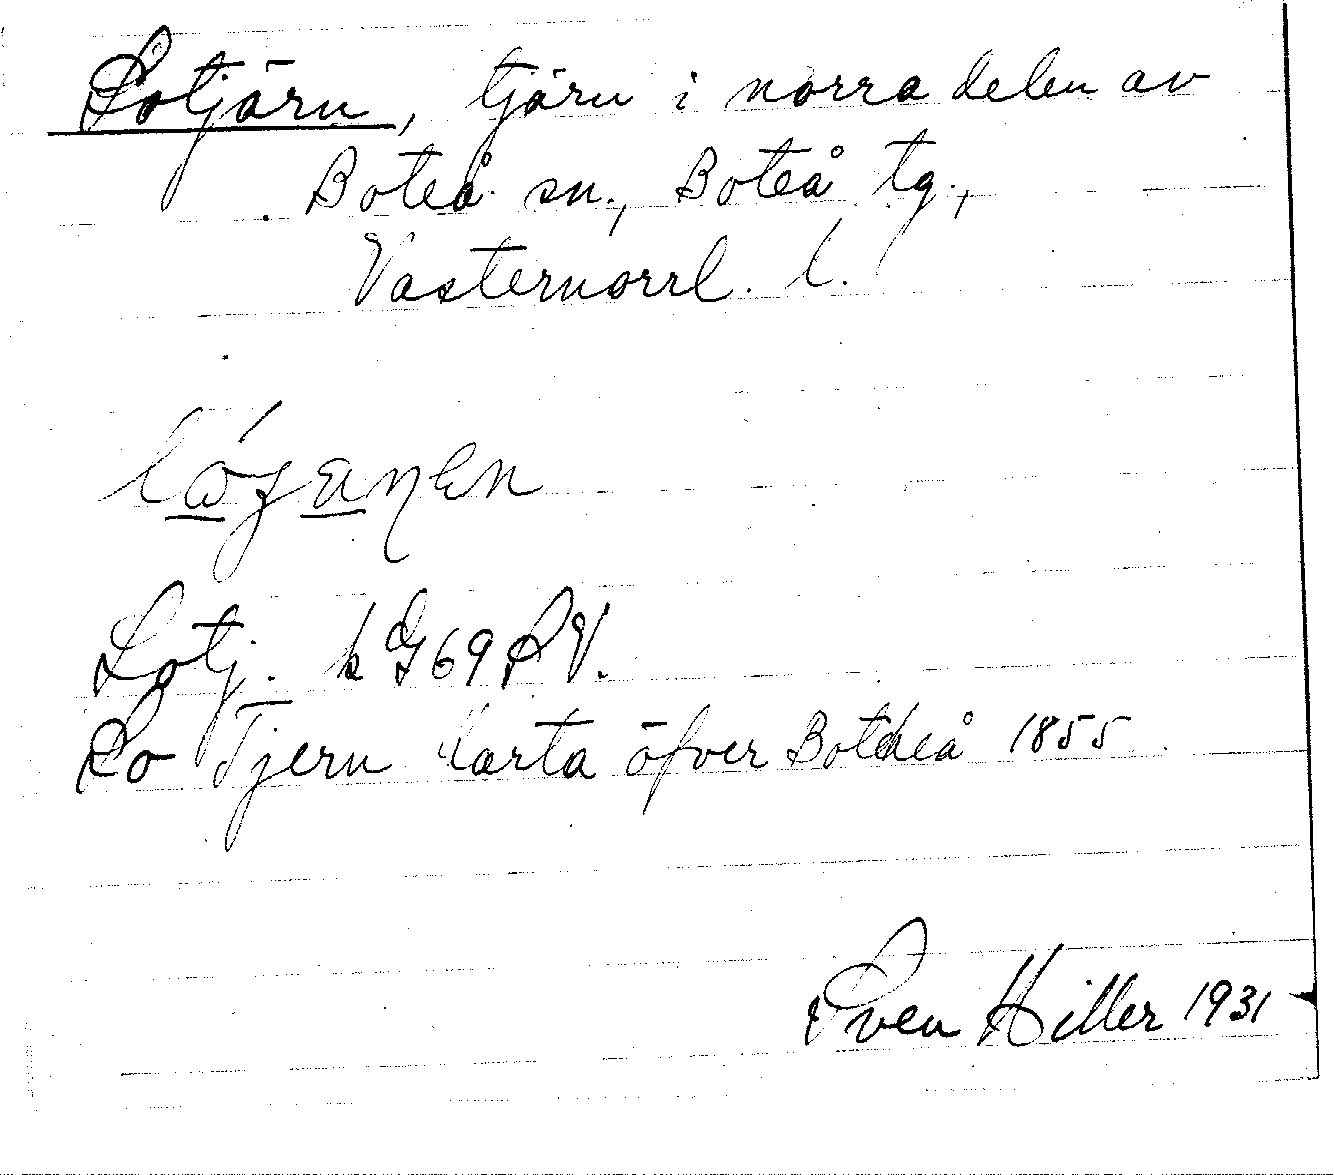 Lotjärn, tjärn i norra delen av
Boteå sn., Boteå tg.,
Västernorrl. l.
Lotj. k G69 SV.
Lo Tjern Karta öfver Botheå 1855
Sven Hiller 1931